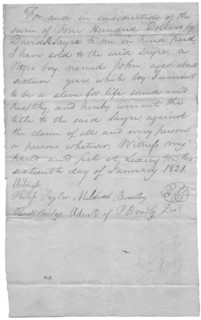 For and in consideration of the
sum of Four Hundred Dollars by
David A Sayre to me in hand paid
I have sold to the said Sayre, a
Negro boy named John, aged about
sixteen years which boy I warrant
to be a slave for life sound and
healthy, and hereby warrant the
title to the said Sayre against
the claim of all and every person
or persons whatever. Witness my
hand and seal at Lexington this
sixteenth day of January 1821.
Witness
Mildred Bradley
of